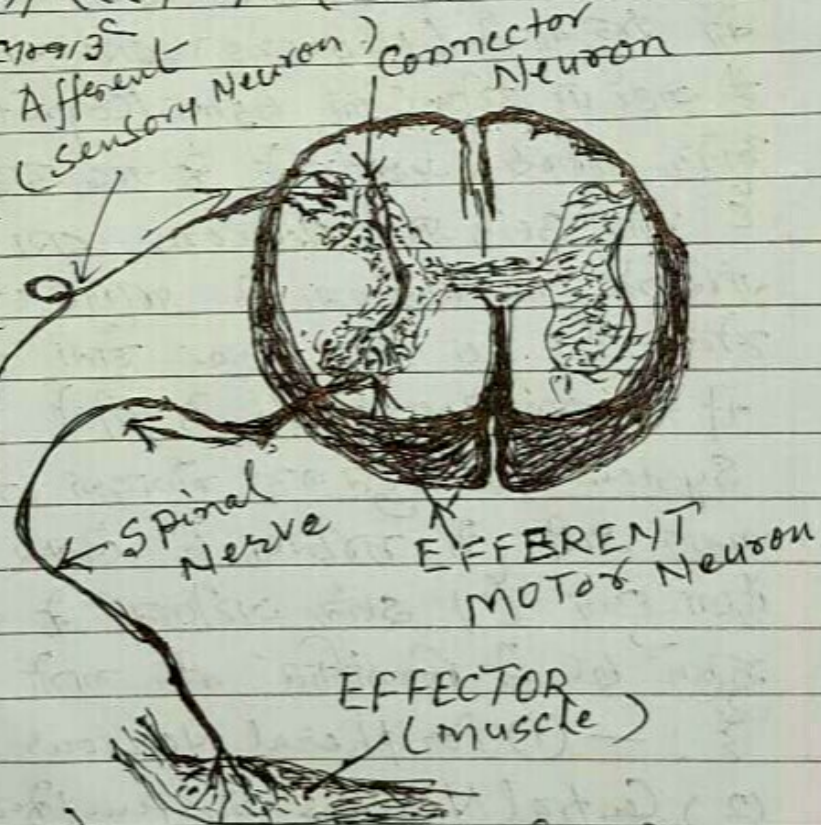 Afferent
(Sensory Neuron)
Connector
Neuron
Spinal
Nerve
EFFERENT
MOTOR Neuron
EFFECTOR
(muscle)